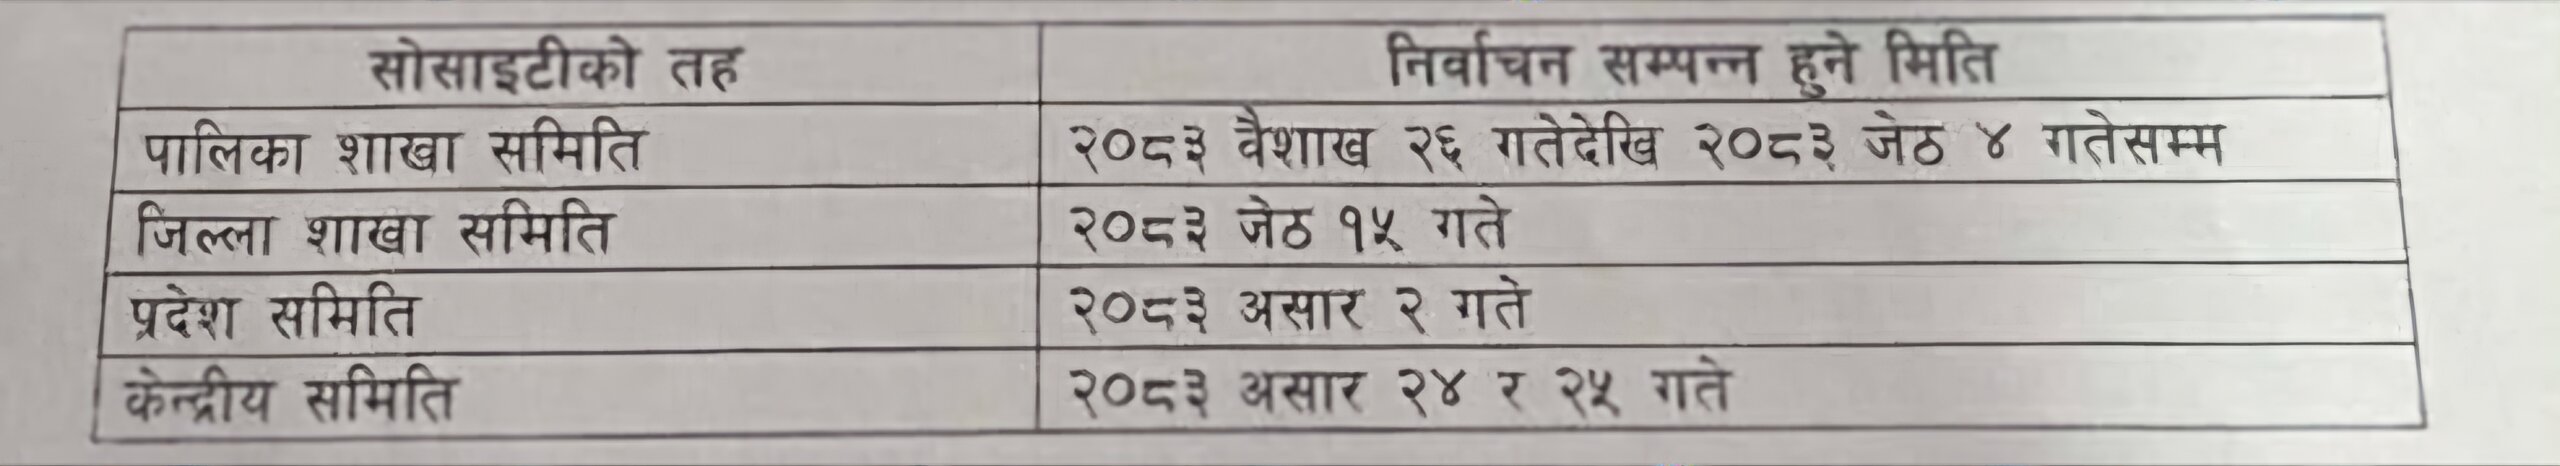 सोसाइटीको तह निर्वाचन सम्पन्न हुने मिति
पालिका शाखा समिति २०८३ वैशाख २६ गतेदेखि २०८३ जेठ ४ गतेसम्म
जिल्ला शाखा समिति २०८३ जेठ १५ गते
प्रदेश समिति २०८३ असार २ गते
केन्द्रीय समिति २०८३ असार २४ र २५ गते